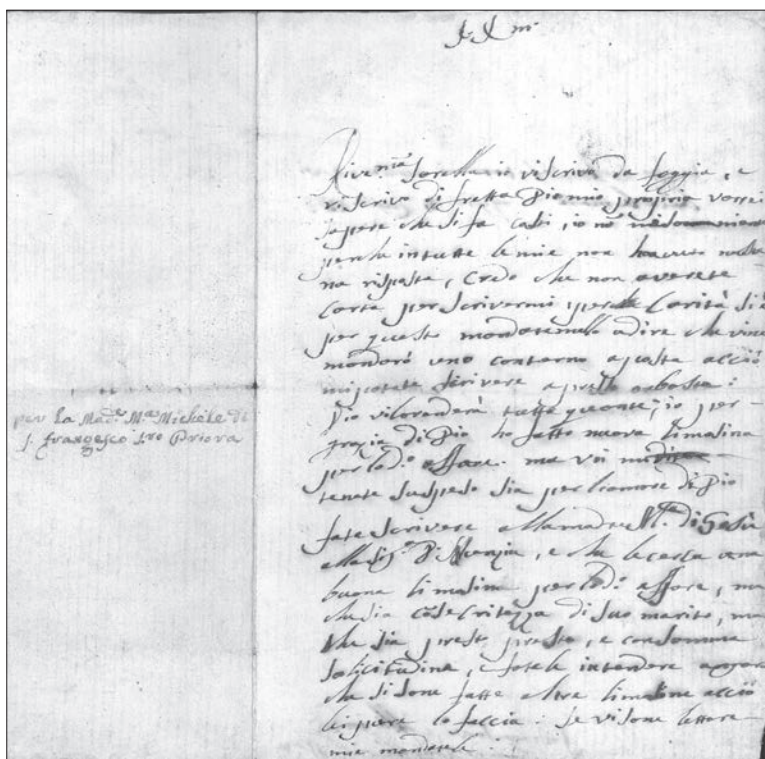 J. X. m.
Rive.ma Sorella io vi scrivo da foggia, e
vi scrivo di fretta Dio mio proprio vorrei
sapere che si fa costi, io nō
perche in tutte le mie non ho avuto
na risposta, Credo che non averete
Carta per scrivermi per la Carità di
per questo mandatemello a dire che vine
mandarò uno quinterno aposta acciò
mi potate scrivere
Dio vi lo renderà tutte quante; io per
grazia di Dio ho fatto nuova limosina
per lo d.o affare. ma voi
tenete suspeso sia per l'amore di Dio
fate scrivere alla madre M.a di Gesù
alla Sig.a D. , e che le cerca una
buona limosina per lo d.o affare, ma
che sia con segritezza di suo marito, ma
che sia presto presto, e con somma
solicitudine, e fatele intendere ancora
che si sono fatte altre limosine acciò
lei pure lo faccia. Se vi sono lettere
mie mandatele.
per la Mad.e M.a Michele di
S. Francesco Sro Priora